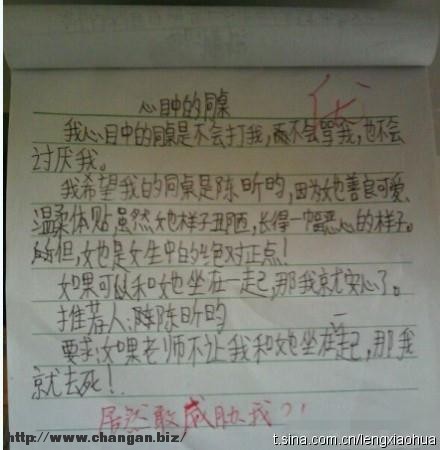 心目中的同桌
优
我心目中的同桌是不会打我,不会骂我,也不会
讨厌我。
我希望我的同桌是陈昕昀,因为她善良可爱、
温柔体贴,虽然她样子丑陋,长得一幅恶心的样子。
的但,她也是女生中的绝对正点!
如果可以和她坐在一起,那我就安心了。
推荐人:陈昕昀
要求:如果老师不让我和她坐在一起,那我
就去死!
居然敢威胁我?!
http://www.changan.biz/
t.sina.com.cn/lengxiaohua